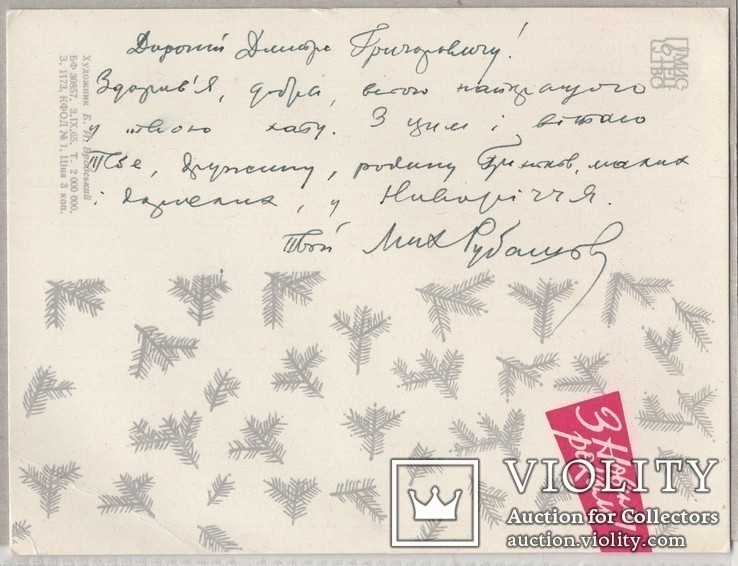 Дорогий Дмитре Григоровичу!
Здоров'я, добра, всього найкращого
у твою хату. З цим і вітаю
Тебе, дружину, родину малих
і дорослих, у Новоріччя.
Твій Мих Рубашов
МИС
ТЕЦ
ТВО
Художник Б.
БФ 30857. 3.IX.65. Т. 2 000 000.
З. 1173, КФОД № 1, Ціна 3 коп.
З Новим
роком
VIOLITY
Auction for Collectors
auction.violity.com